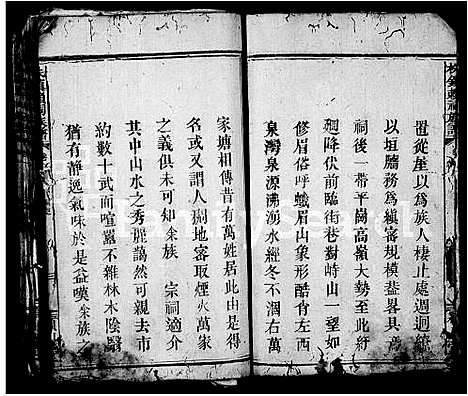 置從堊以為族人棲止處週迴繚
以垣牆務為縝審規模葢畧具焉
祠後一帶平崗高嶺大勢至此紆
廻降伏前臨街巷對峙山一望如
修眉俗呼蛾眉山象形酷肖左西
泉灣泉源沸湧水經冬不涸右萬
家塘相傳昔有萬姓居此由是得
名或又謂人稠地密取煙火萬家
之義俱未可知兹族 宗祠適介
其中山水之秀麗藹然可親去市
約數十武而喧囂不雜林木陰翳
猶有靜逸氣味於是益嘆兹族之